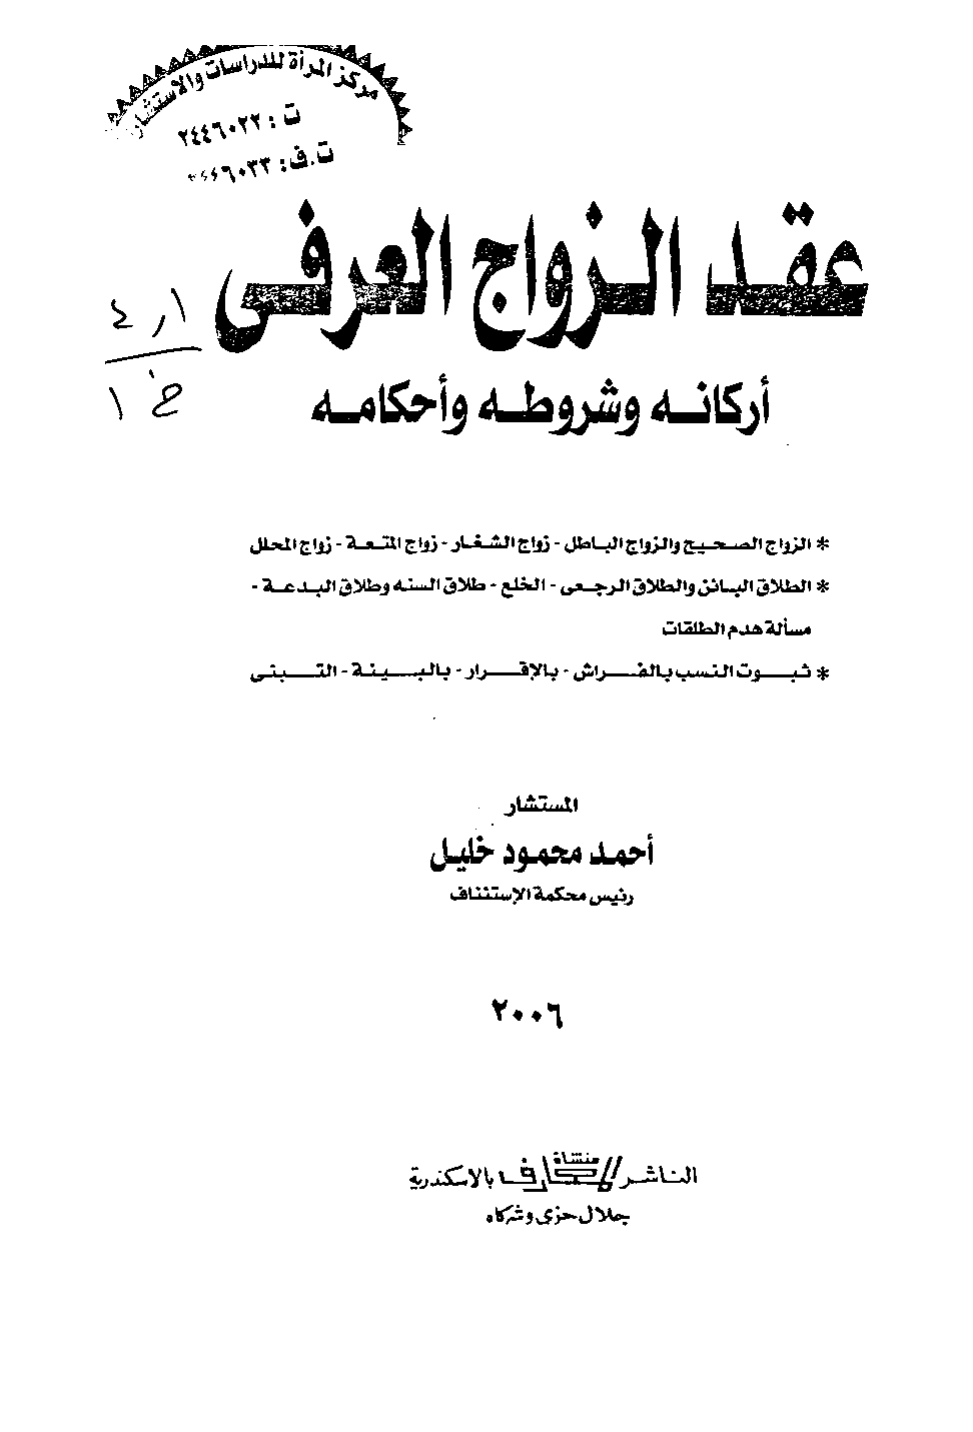 مركز المرأة للدراسات والاستشار
ت : ٢٤٤٦٠٢٢
ت.ف:
عقد الزواج العرفى
أركانه وشروطه وأحكامه
٤ر١
خ ١
* الزواج الصحيح والزواج الباطل - زواج الشغار - زواج المتعة - زواج المحلل
* الطلاق البائن والطلاق الرجعى - الخلع - طلاق السنه وطلاق البدعة -
مسألة هدم الطلقات
* ثبوت النسب بالفراش - بالإقرار - بالبينة - التبنى
المستشار
أحمد محمود خليل
رئيس محكمة الإستئناف
٢٠٠٦
الناشر منشأة المعارف بالاسكندرية
جلال حزى وشركاه